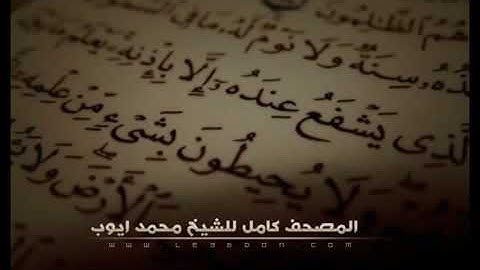 هُمُ الظَّالِمُونَ
سِنَةٌ وَلَا نَوْمٌ لَهُ مَا فِي
الَّذِي يَشْفَعُ عِنْدَهُ إِلَّا بِإِذْنِهِ يَعْلَمُ
وَلَا يُحِيطُونَ بِشَيْءٍ مِنْ عِلْمِهِ
الْأَرْضَ وَلَا
المصحف كامل للشيخ محمد ايوب